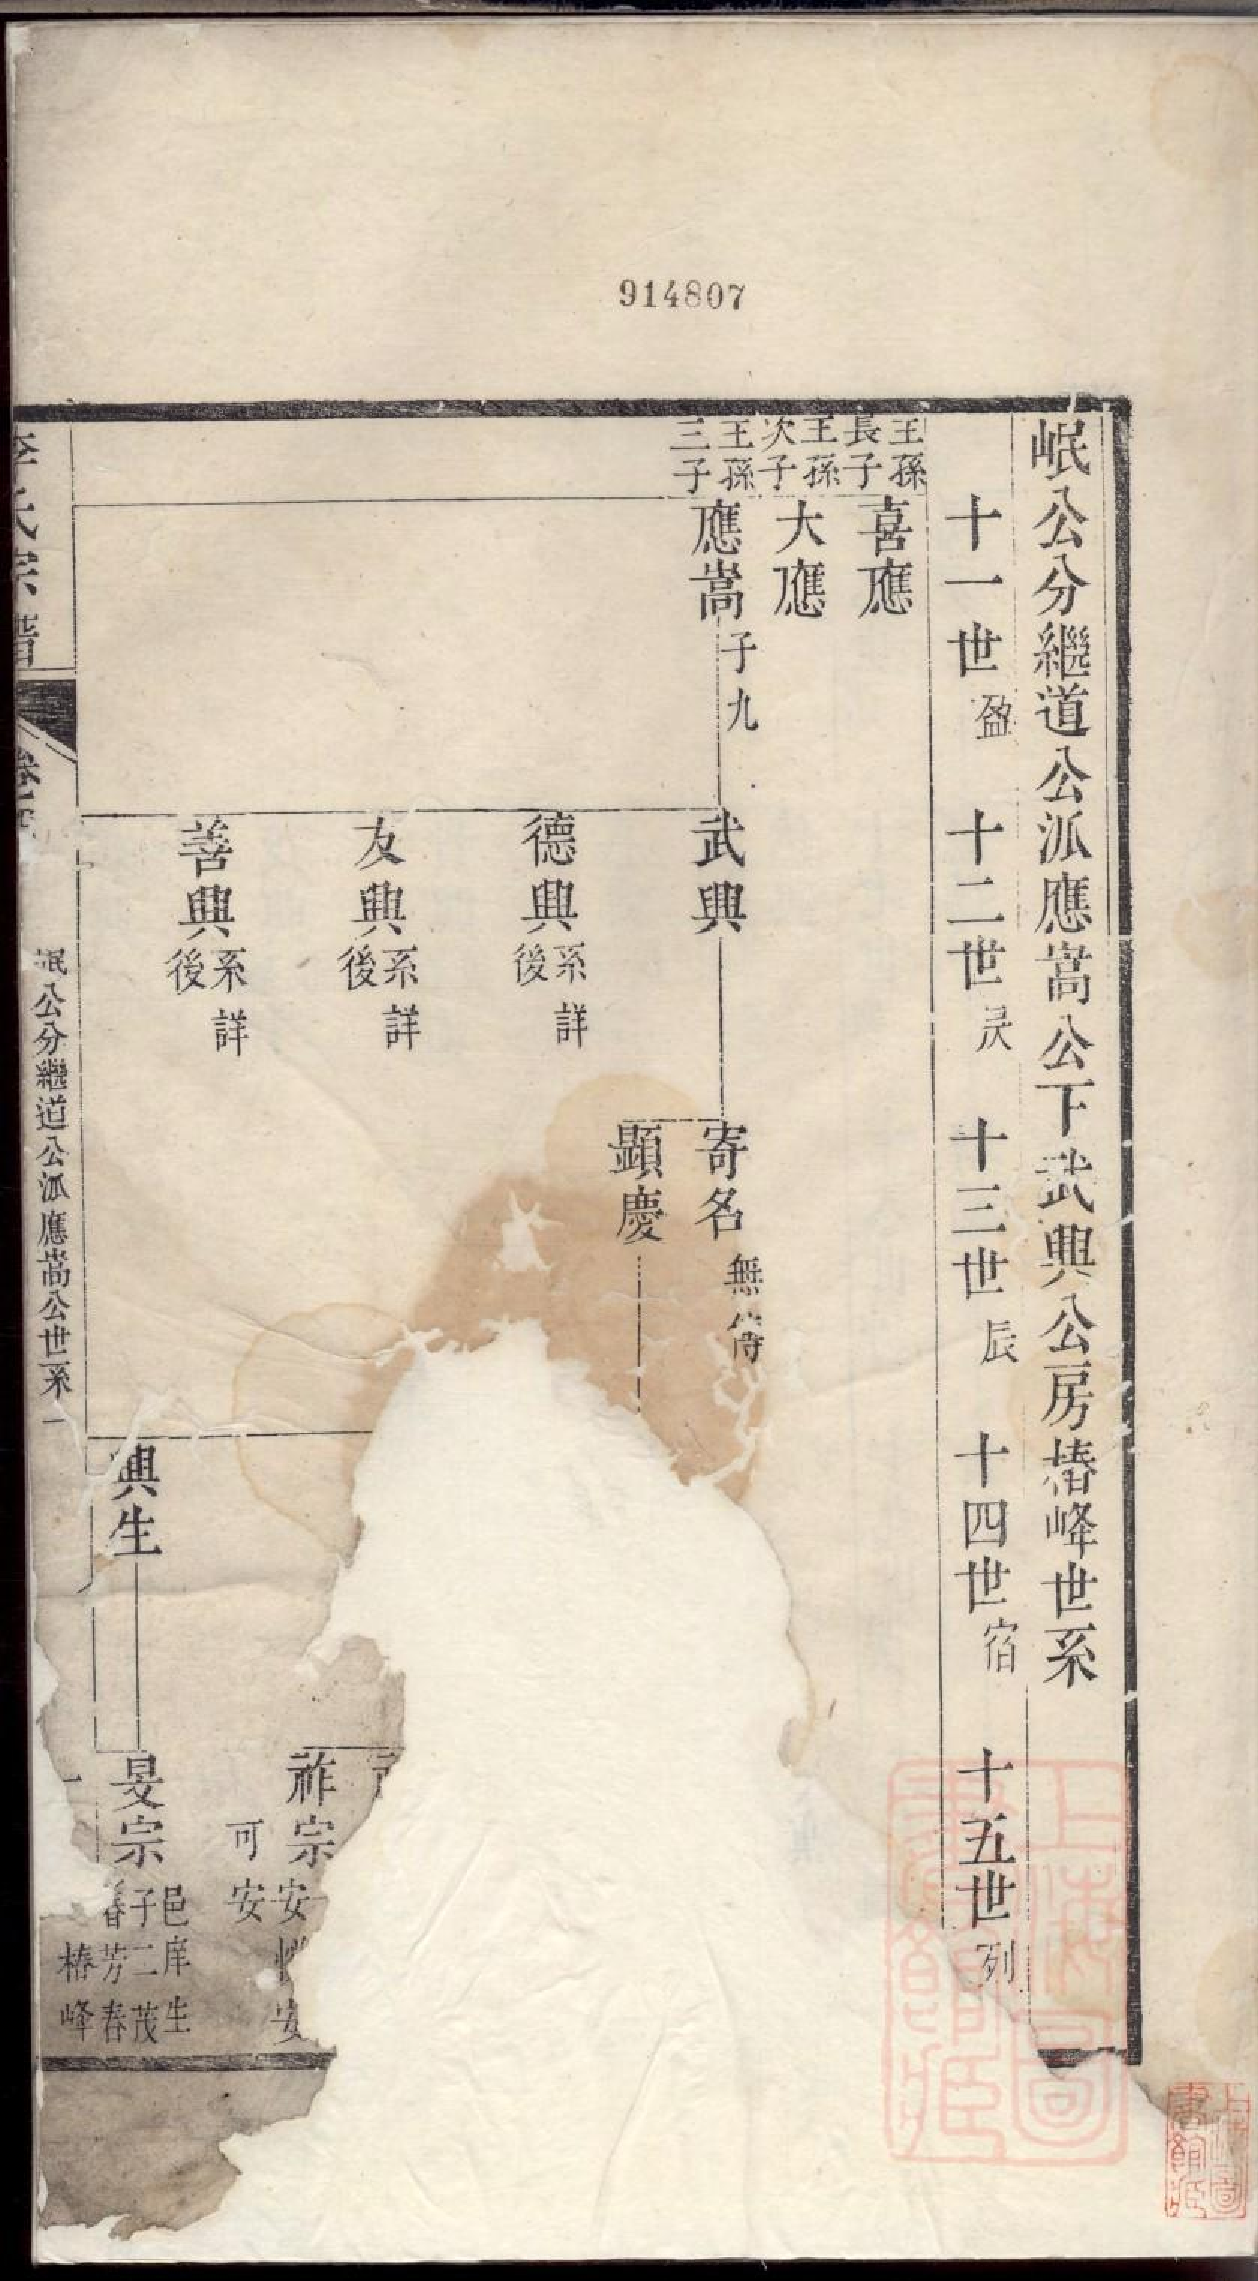 914807
岷公分繼道公派應嵩公下武興公房椿峰世系
十一世盈 十二世昃 十三世辰 十四世宿 十五世列
王孫長子 喜應
王孫次子 大應
王孫三子 應嵩 子九
武興
德興 系詳後
友興 系詳後
善興 系詳後
寄名 無傳
顯慶
興生
祚宗 安
可安
旻宗 邑庠生 子二 茂春 芳春
椿峰
李氏宗譜
岷公分繼道公派應嵩公世系一
上海圖書館藏
上海圖書館藏